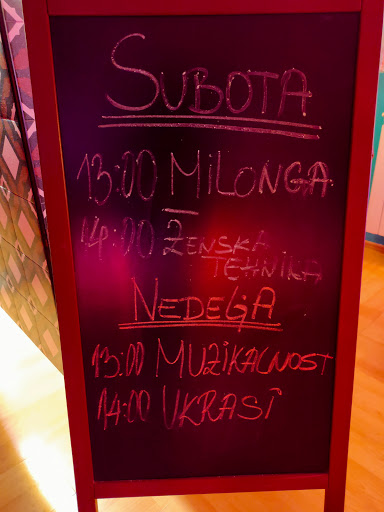 SUBOTA
13:00 MILONGA
14:00 ŽENSKA
TEHNIKA
NEDELJA
13:00 MUZIKALNOST
14:00 UKRASI